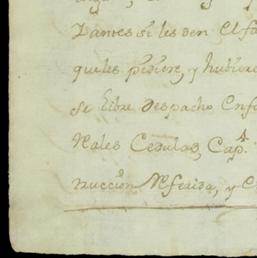 dantes si les den el fa
que les pidiere, y hubiere
se libre despacho Enfo
Reales Cedulas, Cap.ˢ
truccion Referida, y C